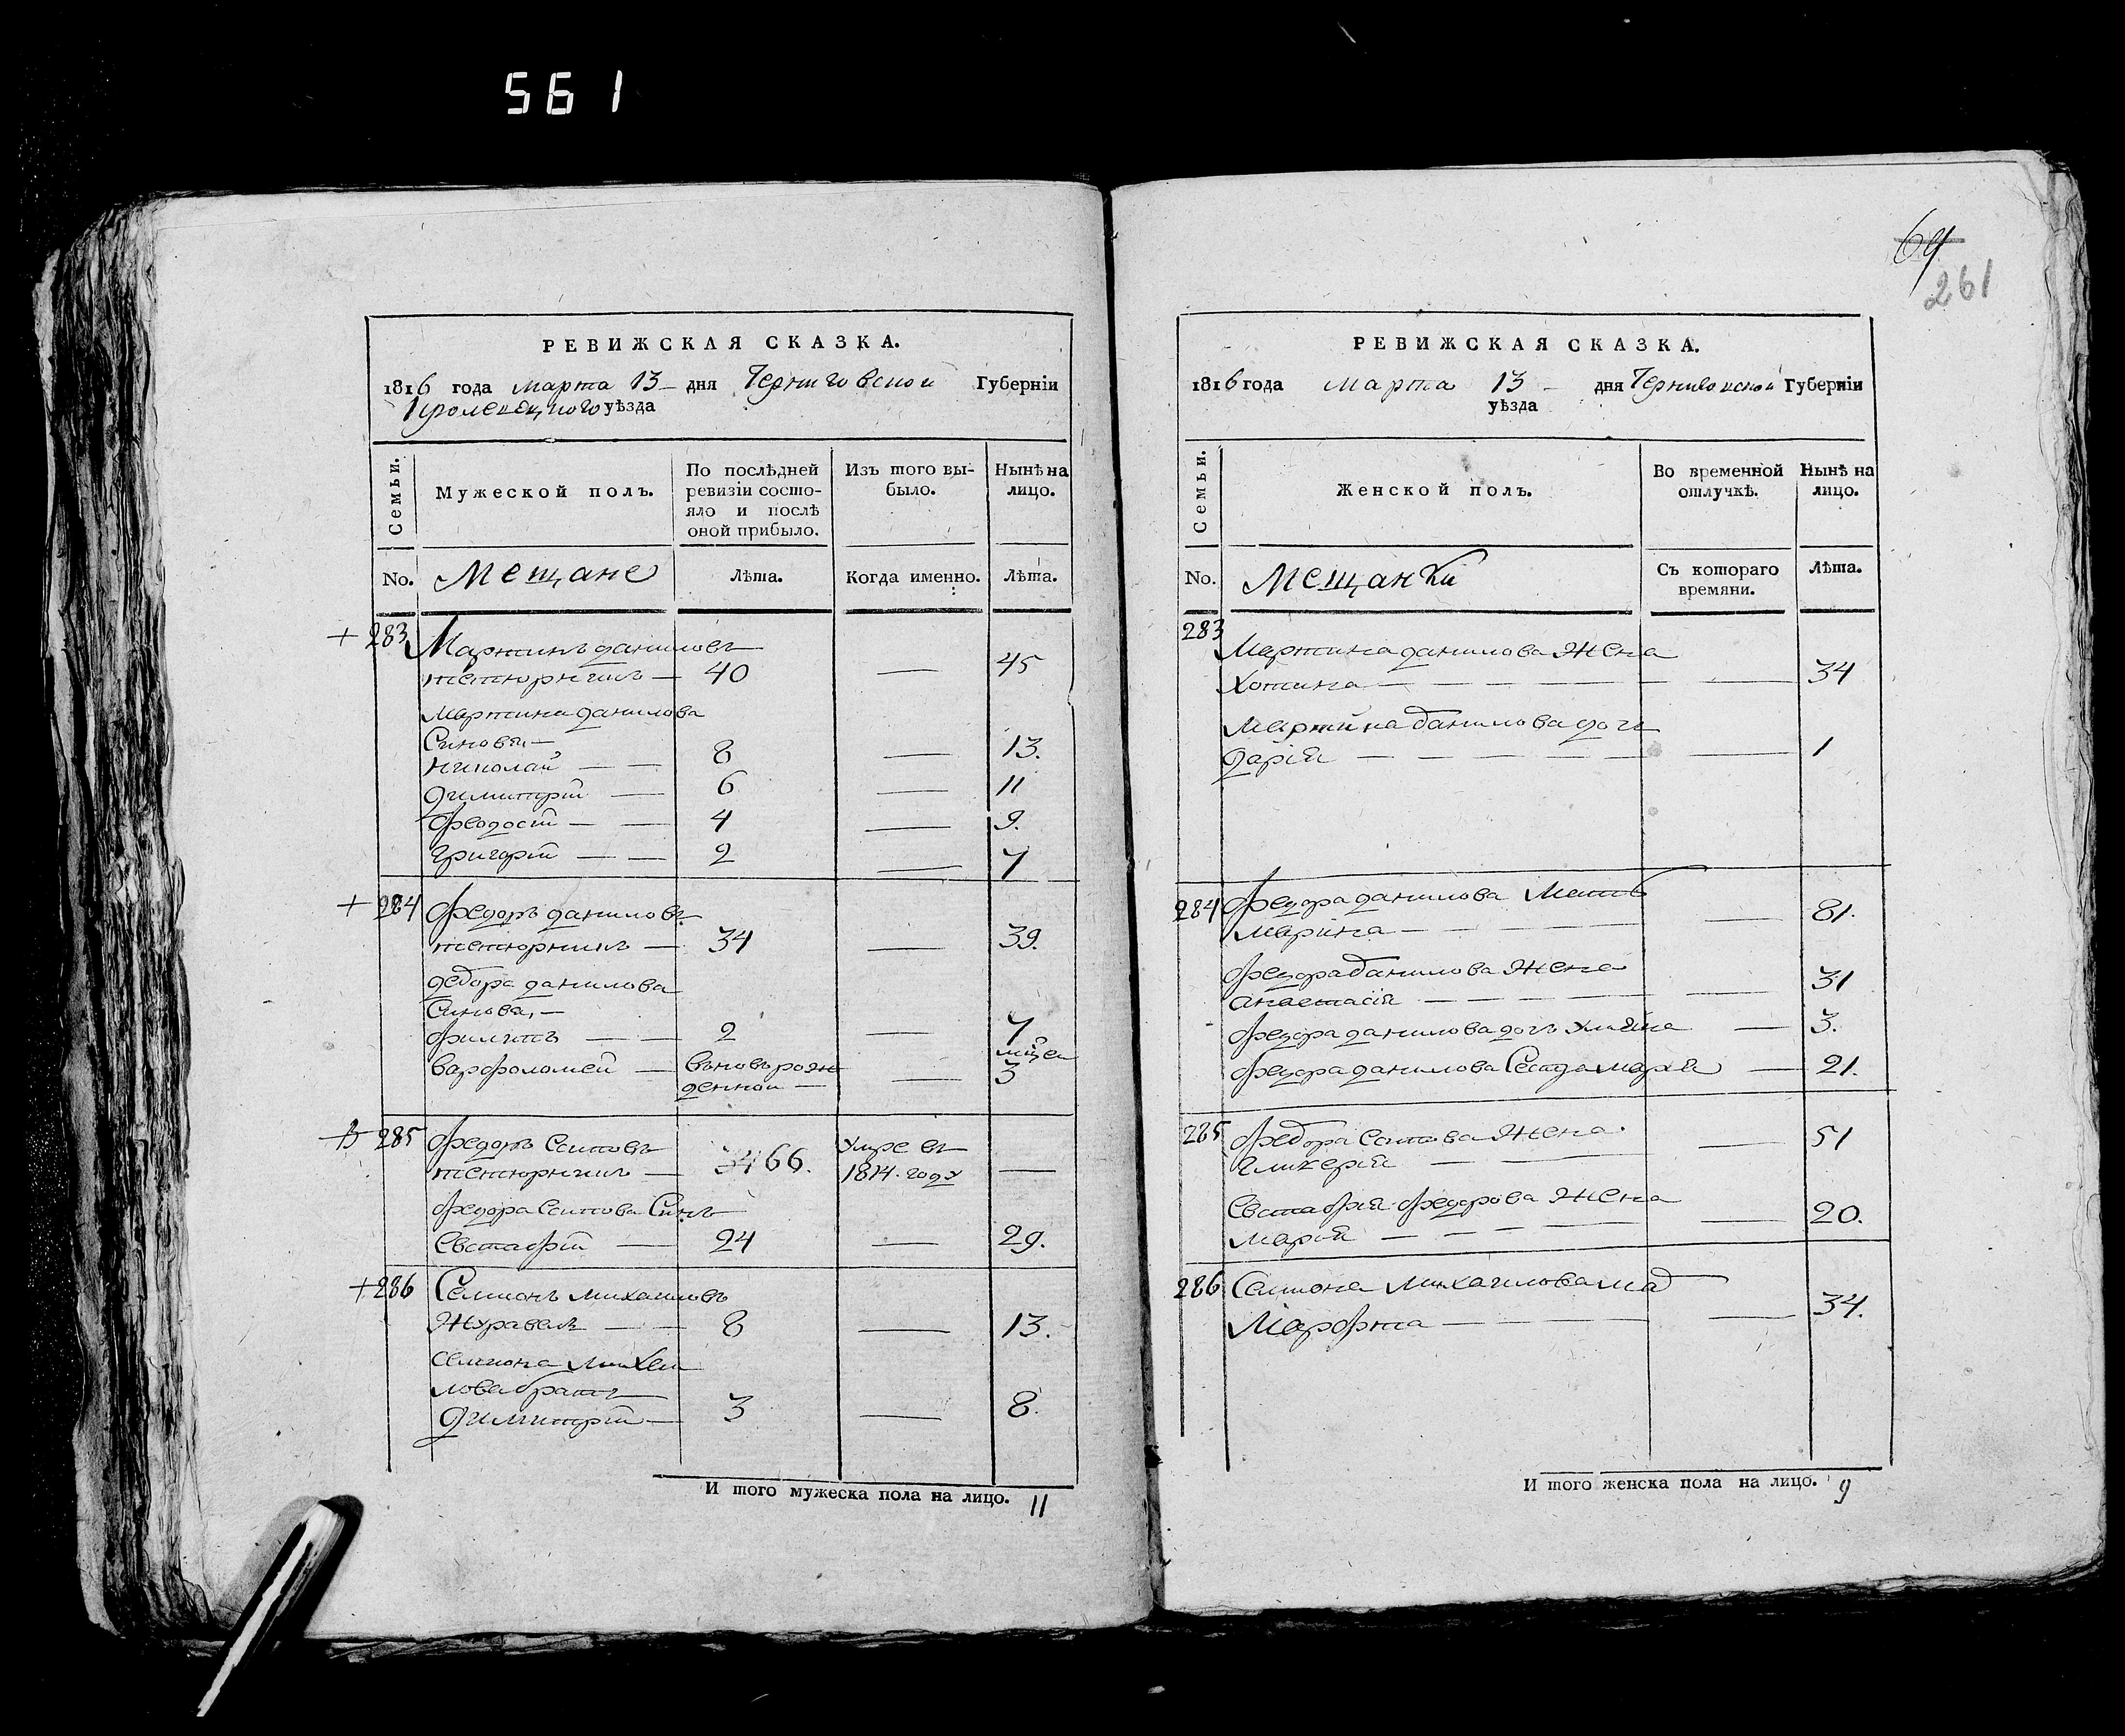 561
64
261
РЕВИЖСКАЯ СКАЗКА.
1816 года марта 13 дня Черниговской Губерніи
Кролевецкого уѣзда
Семьи.
Мужеской полъ.
По послѣдней ревизіи состо-
яло и послѣ
оной прибыло.
Изъ того вы-
было.
Нынѣ на
лицо.
No. Мещане Лѣта. Когда именно. Лѣта.
283 Мартинъ даниловъ
40 — 45
Мартина данилова
Синовя,
николай — 8 — 13.
димитрій — 6 — 11
феодосій — 4 — 9.
григорій — 2 — 7
284 федоръ даниловъ
34 — 39.
федора данилова
Синовя,
филипъ — 2 — 7
варфоломей — въновърож
денной — мцеи 3
285 федоръ
66. умре въ
1814. году —
федора Синъ
Евстафій — 24 — 29.
286 Семионъ михаиловъ
Журавель — 8 — 13.
семиона михаи
лова братъ
димитрій — 3 — 8.
И того мужеска пола на лицо. 11
РЕВИЖСКАЯ СКАЗКА.
1816 года марта 13 дня Черниговской Губерніи
уѣзда
Семьи.
Женской полъ.
Во временной
отлучкѣ.
Нынѣ на
лицо.
No. Мещанки Съ котораго
времяни. Лѣта.
283 Мартина данилова Жена
— 34
Мартина данилова дочь
дарія — 1
284 федора данилова Мать
марина — 81.
федора данилова Жена
анастасія — 31
федора данилова дочь — 3.
федора данилова — 21.
285 федора Жена
гликерія — 51
Евстафія федорова Жена
марія — 20.
286 Семиона михаилова мат
Марфта — 34.
И того женска пола на лицо. 9